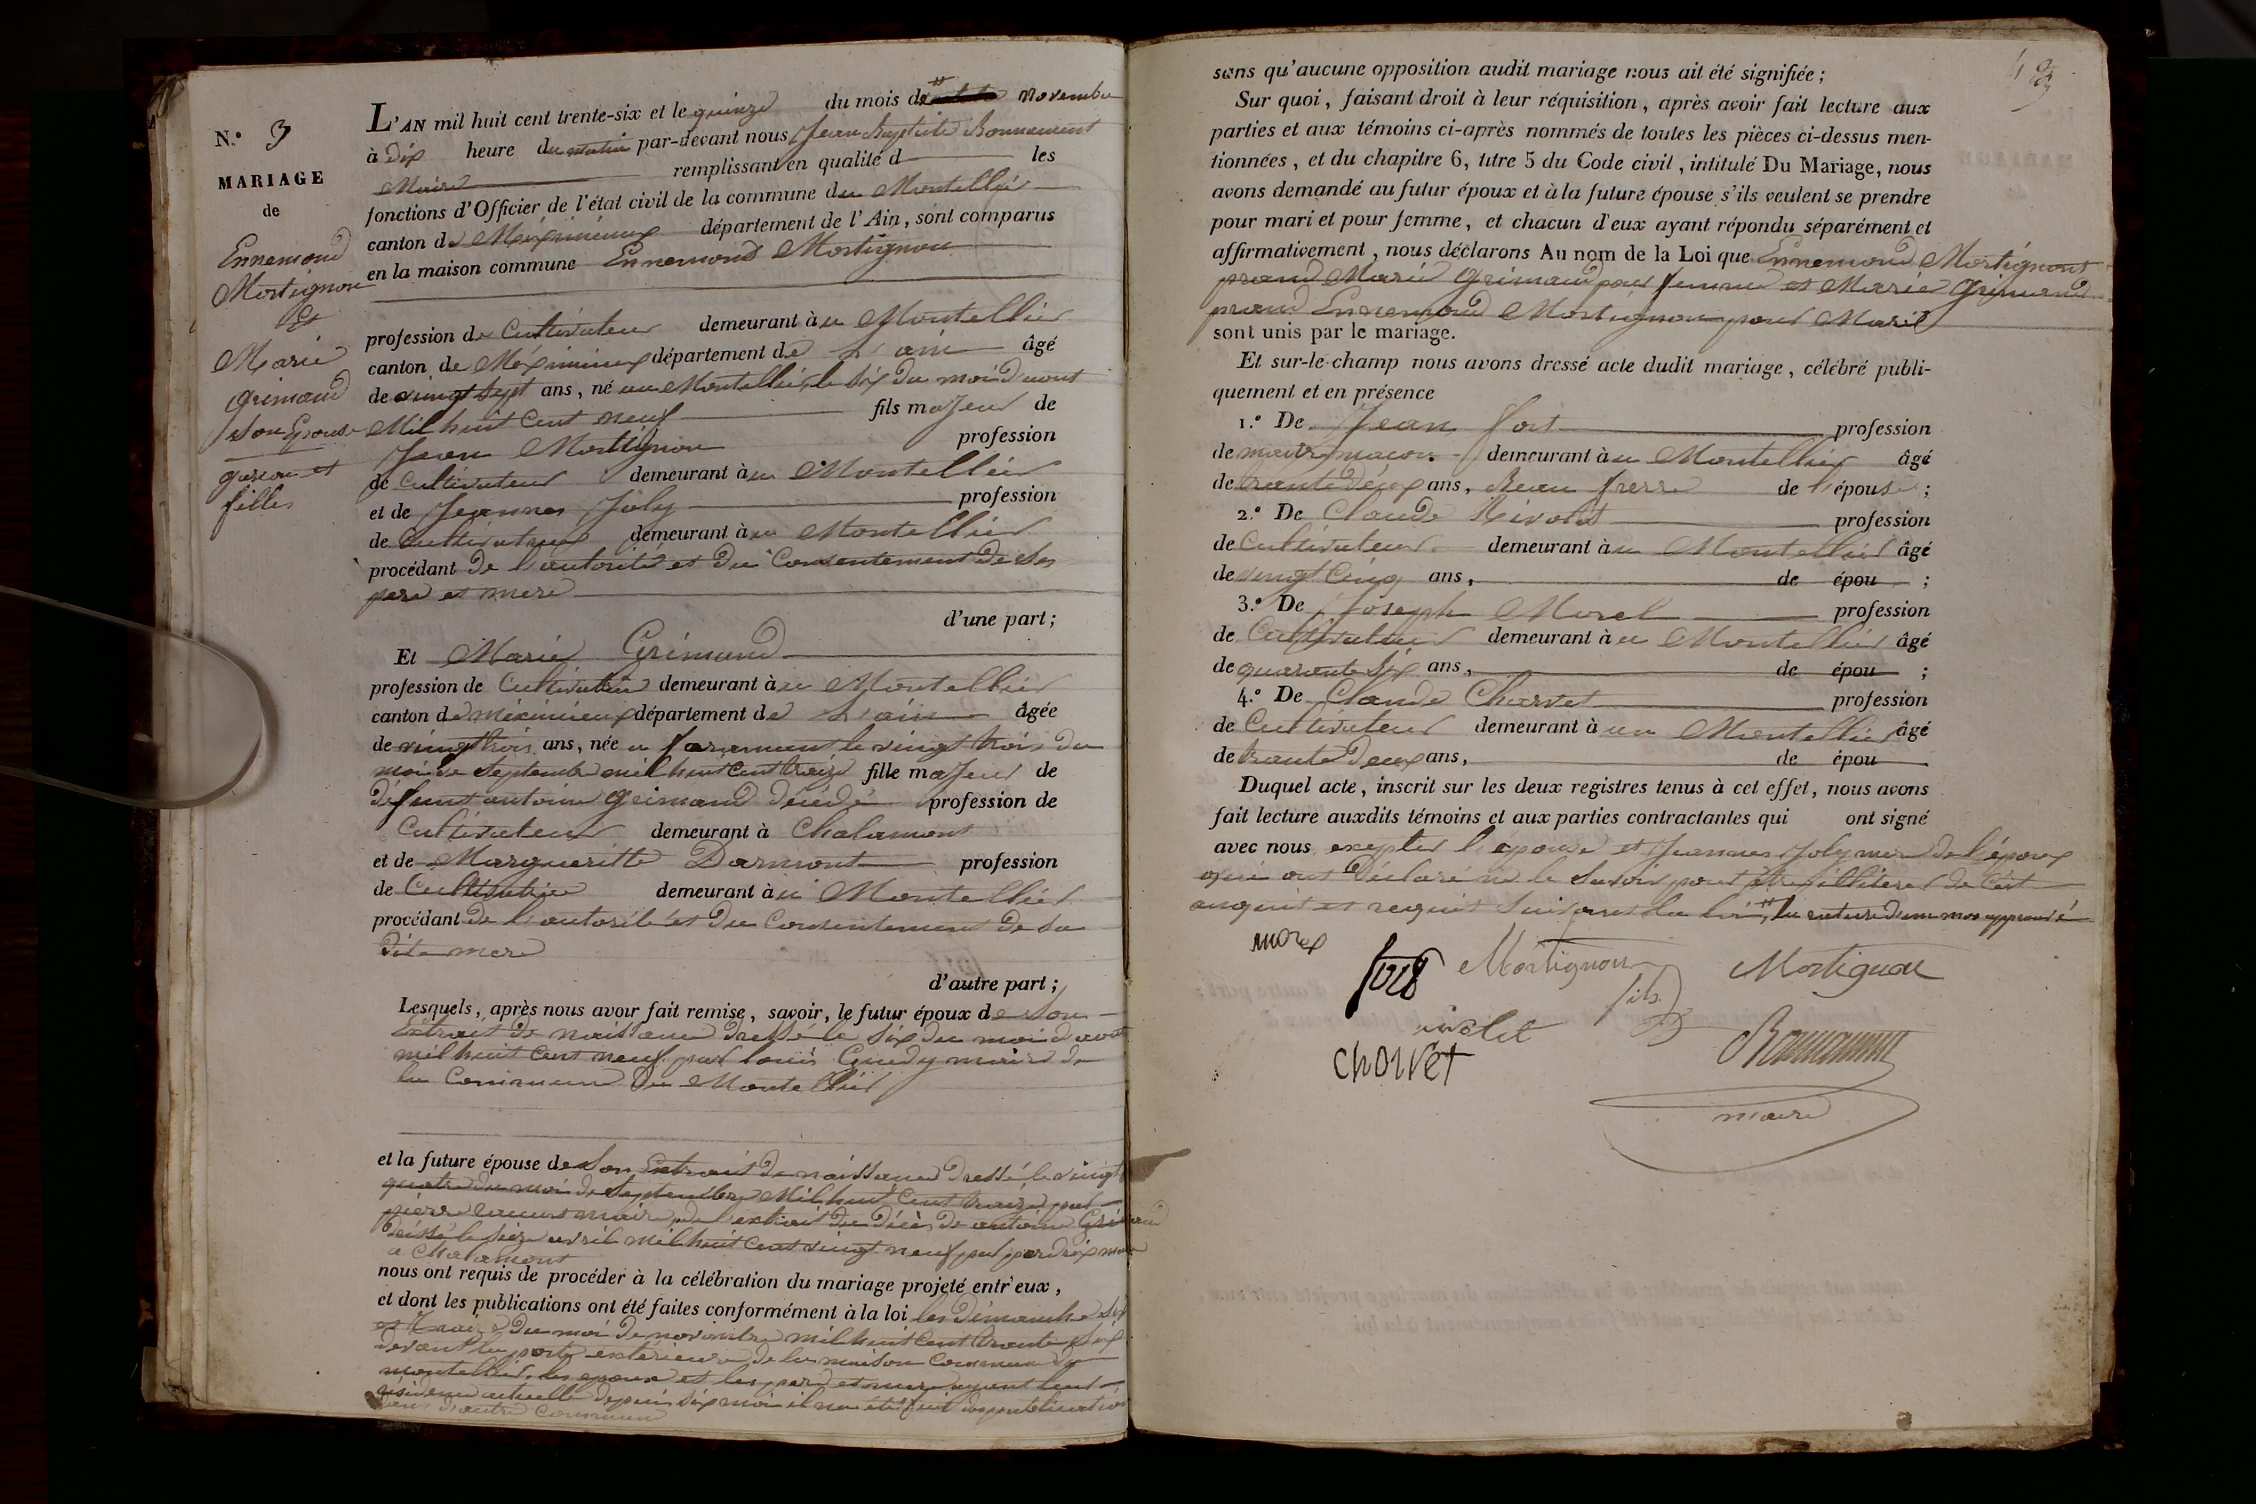 N.º 3
MARIAGE
de
Ennemond
Mortignon
Et
Marie
grimaud
son Epouse
garcon et
filles
L'AN mil huit cent trente-six et le quinze du mois de novembre
à dix heure du matin par-devant nous Jean Baptiste Bonnement
Maire remplissant en qualité d les
fonctions d'Officier de l'état civil de la commune du Montellier
canton de Meximieux département de l'Ain, sont comparus
en la maison commune Ennemond Mortignon
profession de Cultivateur demeurant à u Montellier
canton de Meximieux département de L'ain âgé
de vingt Sept ans, né au Montellier le six du moi d'aout
Mil huit Cent neuf fils majeur de
Jean Mortignon profession
de Cultivateur demeurant à u Montellier
et de Jeannes Joly profession
de Cultivatrice demeurant à u Montellier
procédant De l'autorité et Du Consentement De Ses
pere et mere
d'une part;
Et Marie Grimaud
profession de Cultivatrice demeurant à u Montellier
canton de meximieux département de L'ain âgée
de vingt trois ans, née a faramant le vingt trois du
moi de Septembre mil huit Cent treize fille majeur de
Défunt antoine grimaud décédé profession de
Cultivateur demeurant à Chalamont
et de Margueritte Darmont profession
de Cultivatrice demeurant à u Montellier
procédant de l'autorité et du Consentement De Sa
dite mere
d'autre part;
Lesquels, après nous avoir fait remise, savoir, le futur époux de Son
Extrait de naissance Dressé le Six du moi d'avout
mil huit Cent neuf par louis Guedy maire de
la Commune Du Montellier
et la future épouse de Son Extrait De naissance Dressé le vingt
quatre du moi de Septembre Mil huit Cent treize par
pierre maire, de l'extrait du Décès de antoine Grimaud
Dressé le Seize avril mil huit Cent vingt neuf par perdrix maire
a Chalamont
nous ont requis de procéder à la célébration du mariage projeté entr'eux,
et dont les publications ont été faites conformément à la loi les Dimanche Six
et Treize Du moi De novembre mil huit Cent trente Six
devant la porte exterieure de la maison Commune du
montellier, les epoux et les pere et mere ayant leur
résidence actuelle depuis six moi il n'a été fait des publication
dans d'autre Commune
49
sans qu'aucune opposition audit mariage nous ait été signifiée;
Sur quoi, faisant droit à leur réquisition, après avoir fait lecture aux
parties et aux témoins ci-après nommés de toutes les pièces ci-dessus men-
tionnées, et du chapitre 6, titre 5 du Code civil, intitulé Du Mariage, nous
avons demandé au futur époux et à la future épouse s'ils veulent se prendre
pour mari et pour femme, et chacun d'eux ayant répondu séparément et
affirmativement, nous déclarons Au nom de la Loi que Ennemond Mortignont
prand Marie Grimaud pour femme et Marie Grimaud
prand Ennemond Mortignon pour Marié
sont unis par le mariage.
Et sur-le-champ nous avons dressé acte dudit mariage, célébré publi-
quement et en présence
1.º De Jean fort profession
de maitre macon demeurant à u Montellier âgé
de trante Deux ans, Beau frerre de l'épouse;
2.º De Claude Rivolet profession
de Cultivateur demeurant à u Montellier âgé
de vingt Cinq ans, de épou ;
3.º De Joseph Morel profession
de Cultivateur demeurant à u Montellier âgé
de quarante Six ans, de épou ;
4.º De Claude Charvet profession
de Cultivateur demeurant à u Montellier âgé
de trante Deux ans, de épou
Duquel acte, inscrit sur les deux registres tenus à cet effet, nous avons
fait lecture auxdits témoins et aux parties contractantes qui ont signé
avec nous, exepter l'epouse et Jeannes Joly mere de l'époux
qui ont Déclaré ne le Savoir pour être illiteres de Cest
enquis et requis Suivant la loi, la rature d'un mot approuvé
morel
fort
Mortignon
fils
Mortignon
rivolet
Charvet
Bonnement
maire